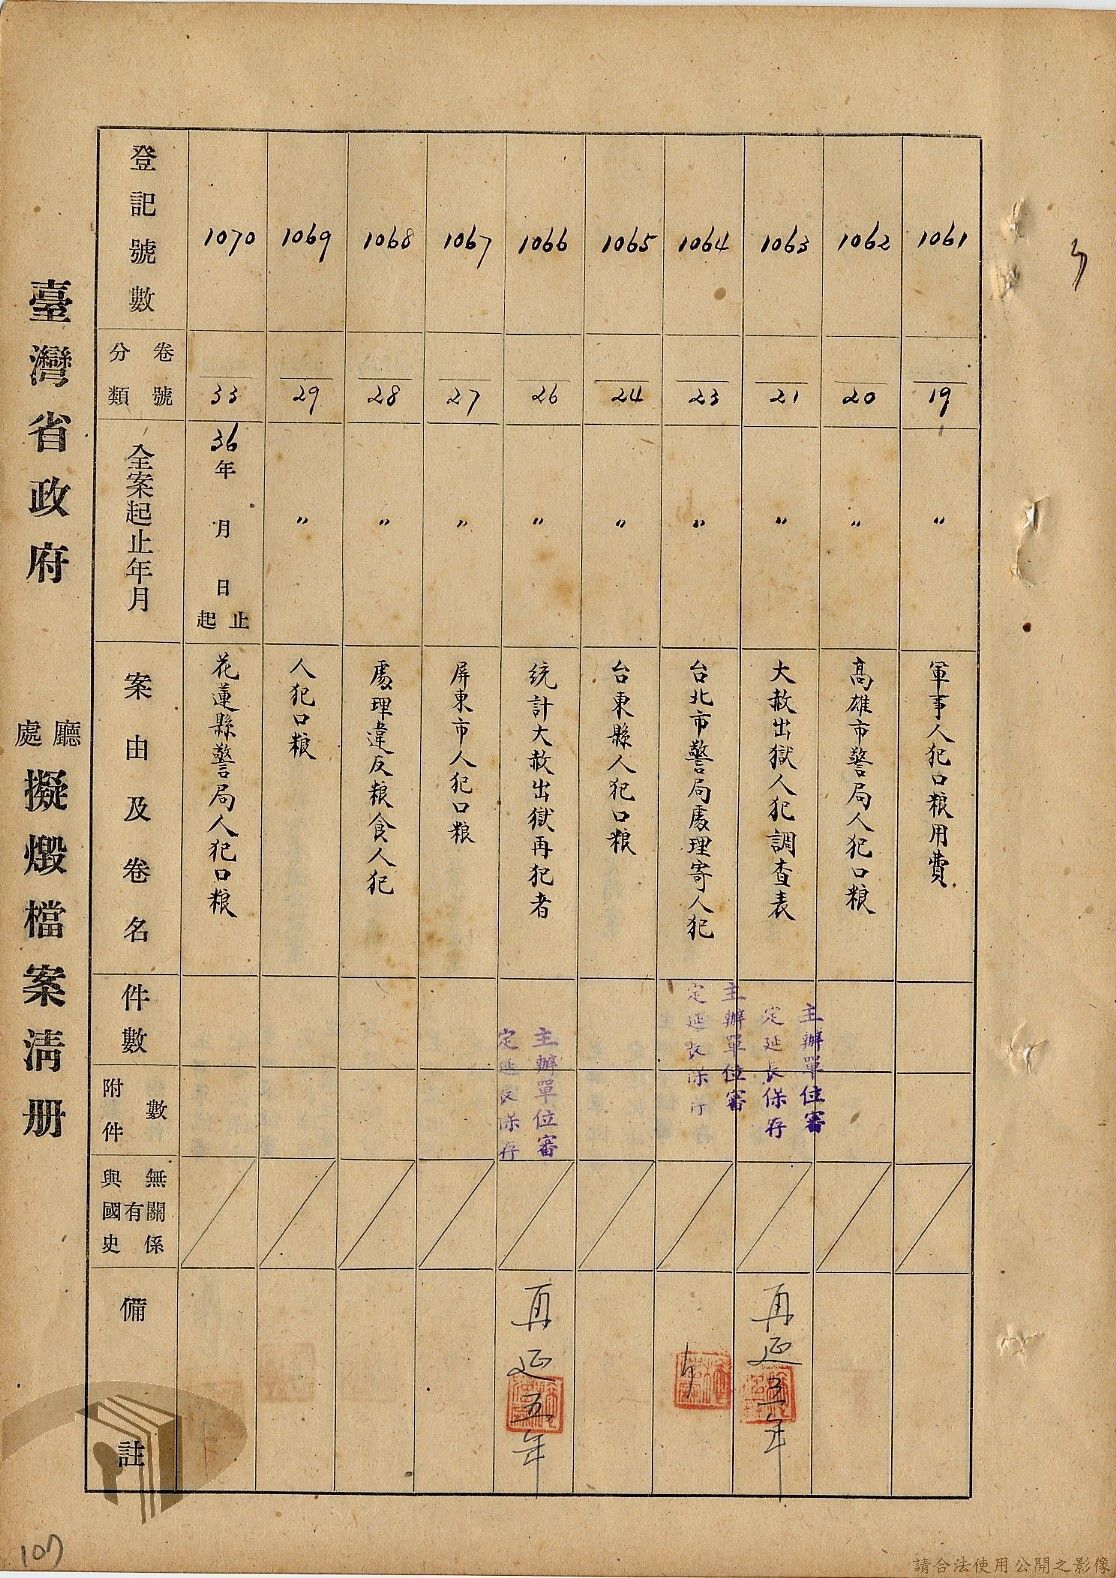 臺灣省政府 廳處 擬燬檔案清册
登記號數
分類 卷號
全案起止年月
案由及卷名
件數
附件 數
與國史 有無關係
備註
1061
19
〃
軍事人犯口粮用費
1062
20
〃
高雄市警局人犯口粮
1063
21
〃
大赦出獄人犯調查表
主辦單位審
定延長保存
再延五年
1064
23
〃
台北市警局處理寄人犯
主辦單位審
定延長保存
1065
24
〃
台東縣人犯口粮
1066
26
〃
統計大赦出獄再犯者
主辦單位審
定延長保存
再延五年
1067
27
〃
屏東市人犯口粮
1068
28
〃
處理違反粮食人犯
1069
29
〃
人犯口粮
1070
33
36年 月 日 起止
花蓮縣警局人犯口粮
107
請合法使用公開之影像